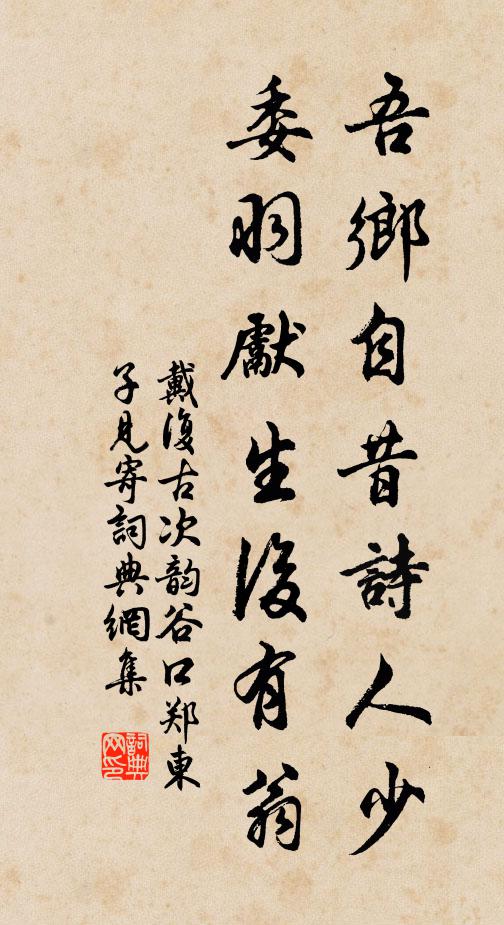 吾鄉自昔詩人少
委羽獻生後有翁
戴復古次韵谷口郑東
子見寄詞典網集
詞典网印